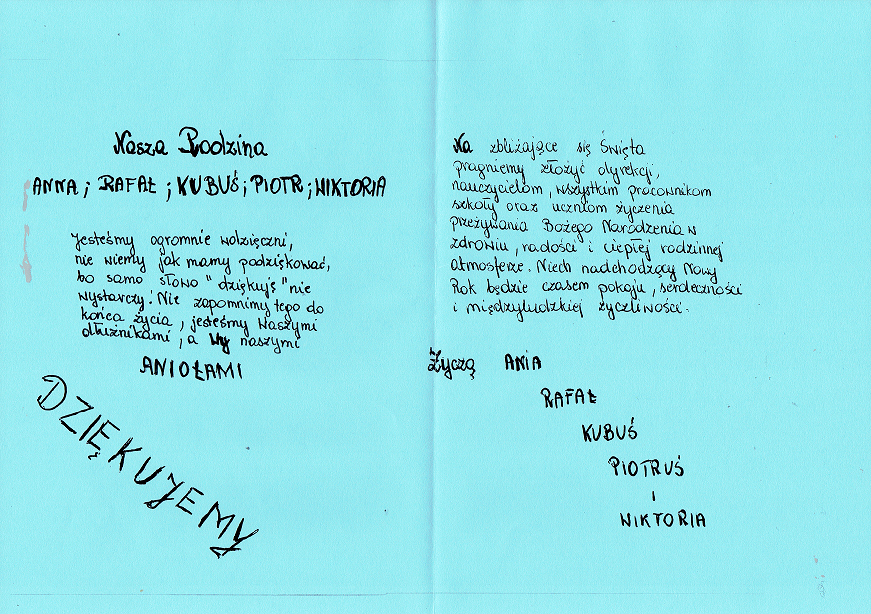 Nasza Rodzina
ANNA; RAFAŁ; KUBUŚ; PIOTR; WIKTORIA
Jesteśmy ogromnie wdzięczni,
nie wiemy jak mamy podziękować,
bo samo słowo "dziękuję" nie
wystarczy! Nie zapomnimy tego do
końca życia, jesteśmy Waszymi
dłużnikami, a Wy naszymi
ANIOŁAMI
DZIĘKUJEMY
Na zbliżające się Święta
pragniemy złożyć dyrekcji,
nauczycielom, wszystkim pracownikom
szkoły oraz uczniom życzenia
przeżywania Bożego Narodzenia w
zdrowiu, radości i ciepłej rodzinnej
atmosferze. Niech nadchodzący Nowy
Rok będzie czasem pokoju, serdeczności
i międzyludzkiej życzliwości.
Życzą ANIA
RAFAŁ
KUBUŚ
PIOTRUŚ
i
WIKTORIA